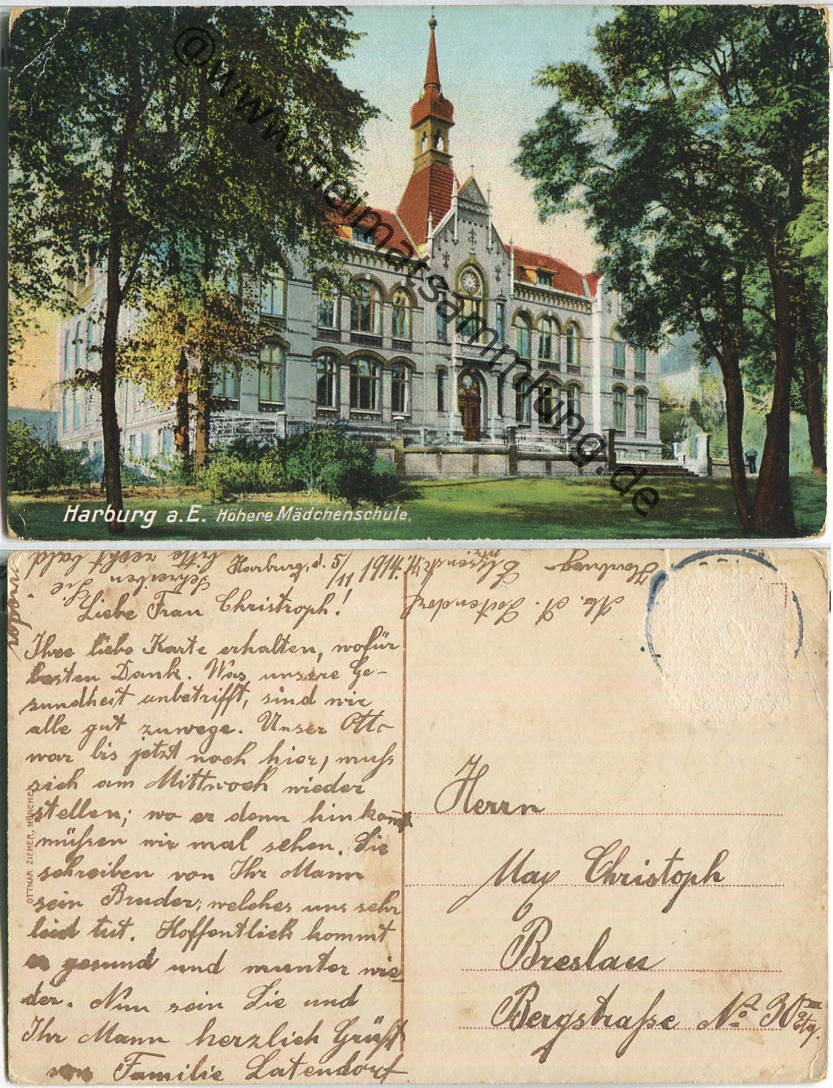 @www.heimatsammlung.de
Harburg a.E. Höhere Mädchenschule.
Harburg, d. 5/11 1914.
Liebe Frau Christroph!
Ihre liebe Karte erhalten, wofür
besten Dank. Was unsere Ge-
sundheit anbetrifft, sind wir
alle gut zuwege. Unser Otto
war bis jetzt noch hier, muß
sich am Mittwoch wieder
stellen; wo er denn hinkommt
müßen wir mal sehen. Sie
schreiben von Ihr Mann
sein Bruder, welches uns sehr
leid tut. Hoffentlich kommt
er gesund und munter wie-
der. Nun sein Sie und
Ihr Mann herzlich Grüßt
von Familie Latendorf
Schreiben Sie bitte recht bald wieder
Ab. A. Latendorf
Harburg
OTTMAR ZIEHER, MÜNCHEN
Herrn
Max Christoph
Breslau
Bergstraße No. 30